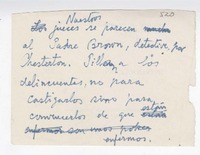 Nuestros 520
Los jueces se parecen mucho
al Padre Brown, detective, por
Chesterton. Pillan a los
delincuentes, no para
castigarlos sino para
convencerlos de que están
enfermos son unos pobres
enfermos.